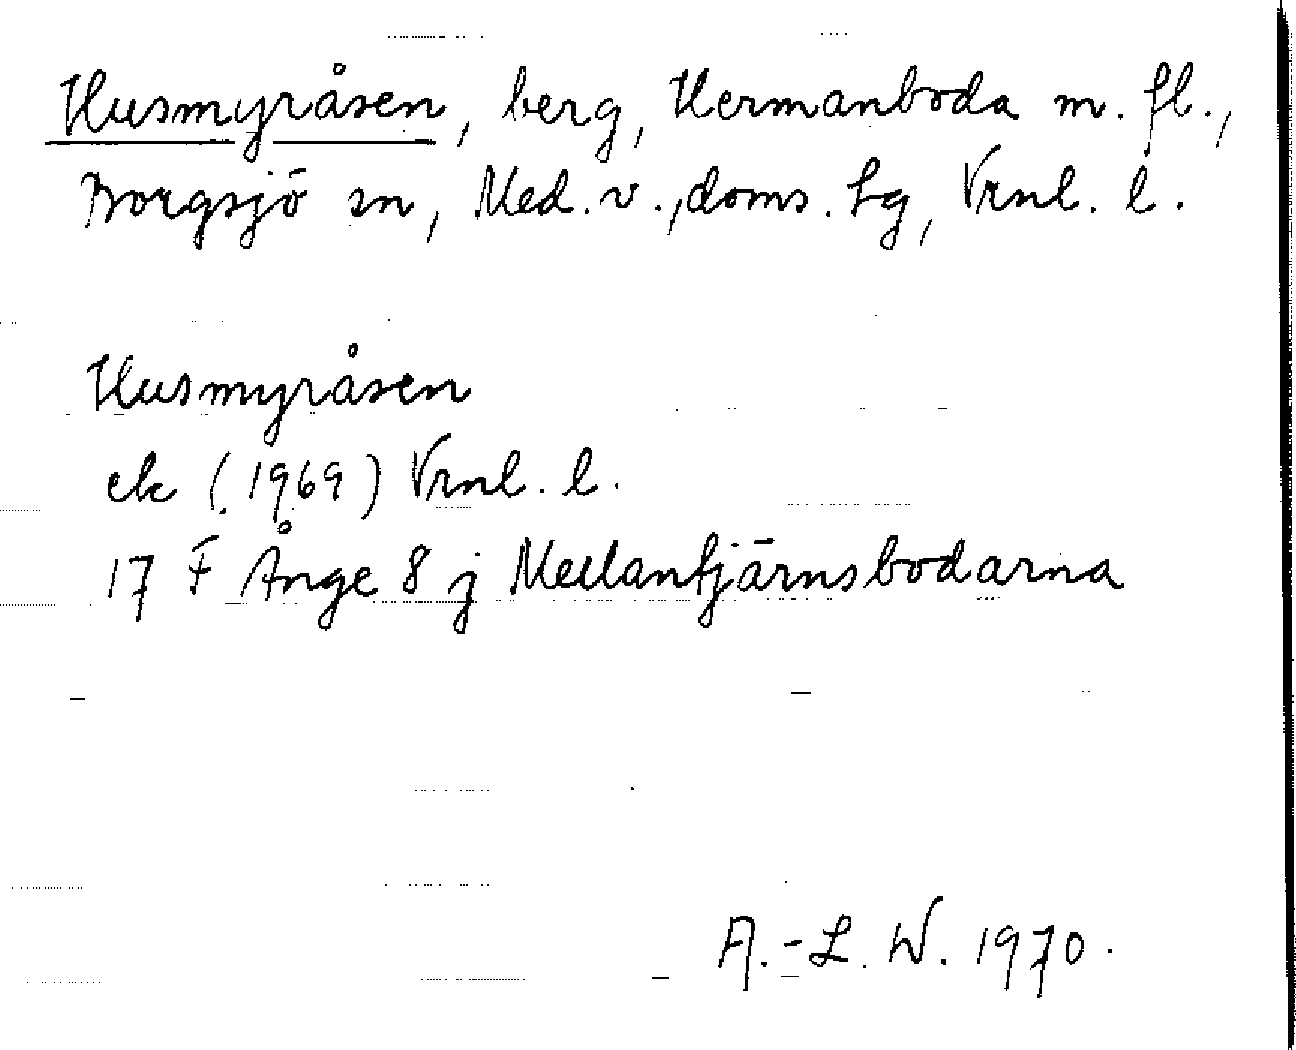 Husmyråsen, berg, Hermanboda m. fl.,
Borgsjö sn, Med. v., doms. lg, Vrnl. l.
Husmyråsen
ek (1969) Vrnl. l.
17 F Ånge 8 j Mellantjärnsbodarna
A.-L. W. 1970.